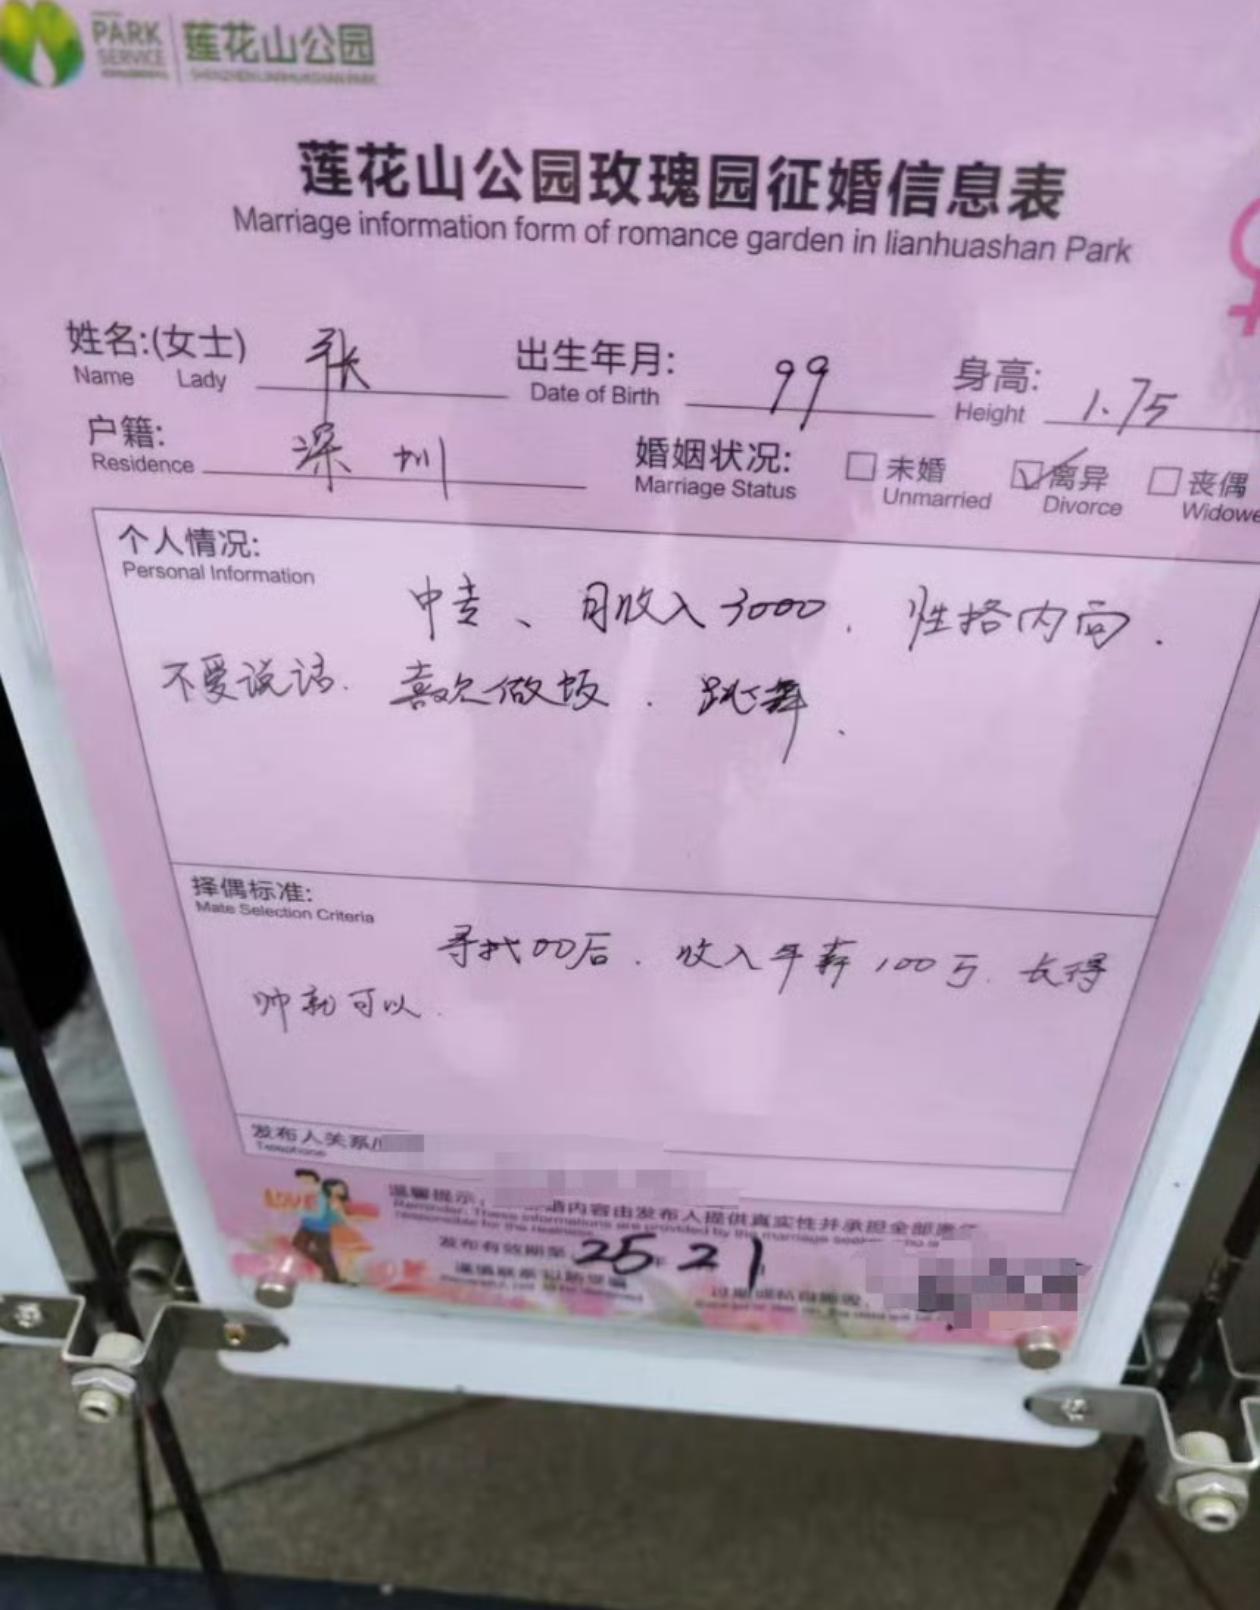 PARK
SERVICE
莲花山公园
SHENZHEN LIANHUASHAN PARK
莲花山公园玫瑰园征婚信息表
Marriage information form of romance garden in lianhuashan Park
姓名:(女士) 张 出生年月: 99 身高: 1.75
Name Lady Date of Birth Height
户籍: 深圳 婚姻状况: 未婚 离异 丧偶
Residence Marriage Status Unmarried Divorce Widowe
个人情况:
Personal Information
中专、月收入3000. 性格内向.
不爱说话. 喜欢做饭. 跳舞.
择偶标准:
Mate Selection Criteria
寻找00后. 收入年薪100万. 长得
帅就可以.
发布人关系/
Telephone
LOVE
温馨提示, 内容由发布人提供真实性并承担全部责任
Reminder: These informations are provided by the marriage
responsible for the
发布有效期至 25年 2 1
谨慎联系以防受骗